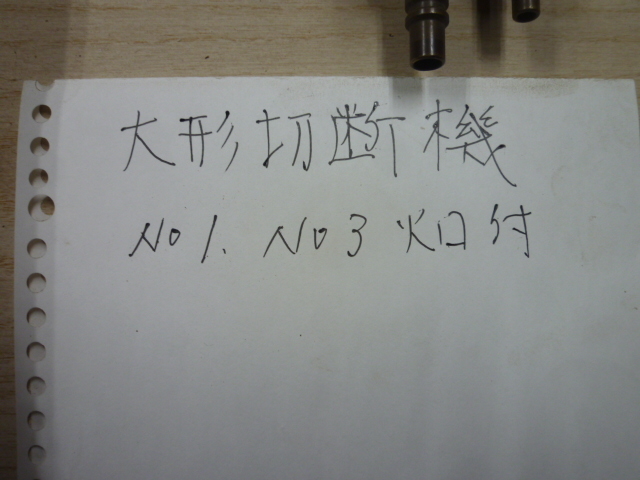 大形切断機
No1. No3 火口付